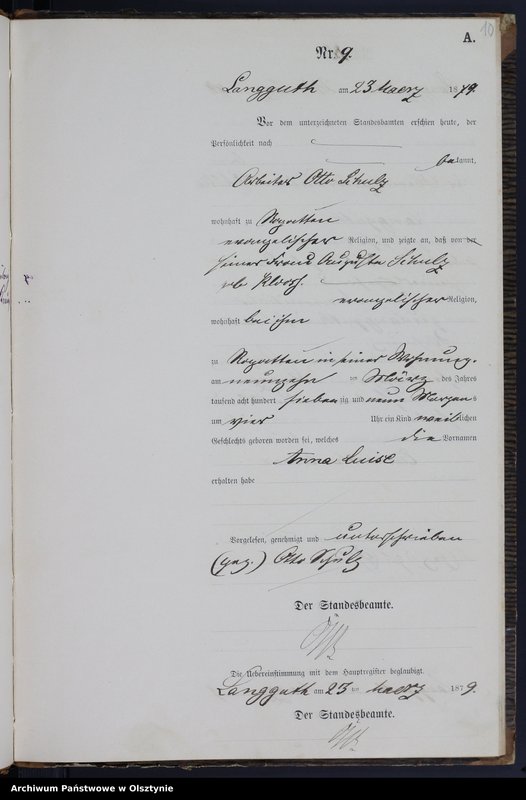 10
A.
Nr. 9.
Langguth am 23 Maerz 1879.
Vor dem unterzeichneten Standesbeamten erschien heute, der
Persönlichkeit nach
bekannt,
Arbeiter Otto Schulz
wohnhaft zu
evangelischer Religion, und zeigte an, daß von der
seiner Frau Auguste Schulz
evangelischer Religion,
wohnhaft bei ihm
zu in seiner Wohnung,
am neunzehn ten März des Jahres
tausend acht hundert siebenzig und neun Morgens
um vier Uhr ein Kind weiblichen
Geschlechts geboren worden sei, welches die Vornamen
Anna Luise
erhalten habe
Vorgelesen, genehmigt und unterschrieben
(gez.) Otto Schulz
Der Standesbeamte.
Die Uebereinstimmung mit dem Hauptregister beglaubigt.
Langguth am 23 ten Maerz 1879.
Der Standesbeamte.
Archiwum Państwowe w Olsztynie